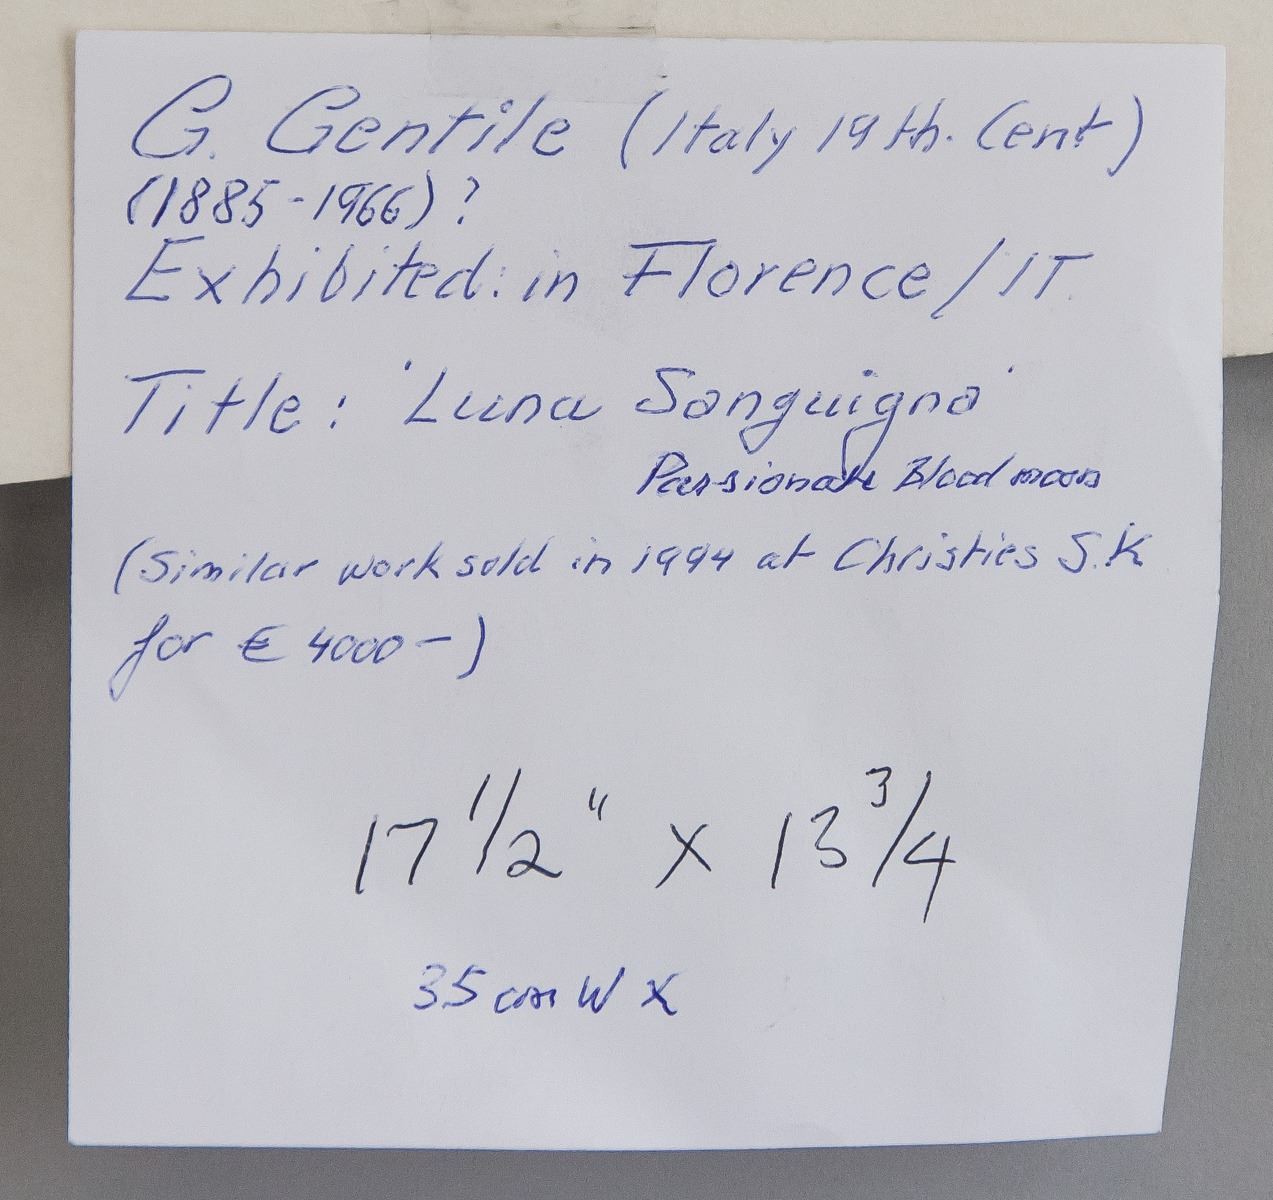 G. Gentile (Italy 19th. Cent)
(1885-1966)?
Exhibited: in Florence/IT.
Title: 'Luna Sanguigna'
Passionate Bloodmoon
(Similar work sold in 1994 at Christies S.K
for € 4000-)
17 1/2" x 13 3/4
35 cm W x